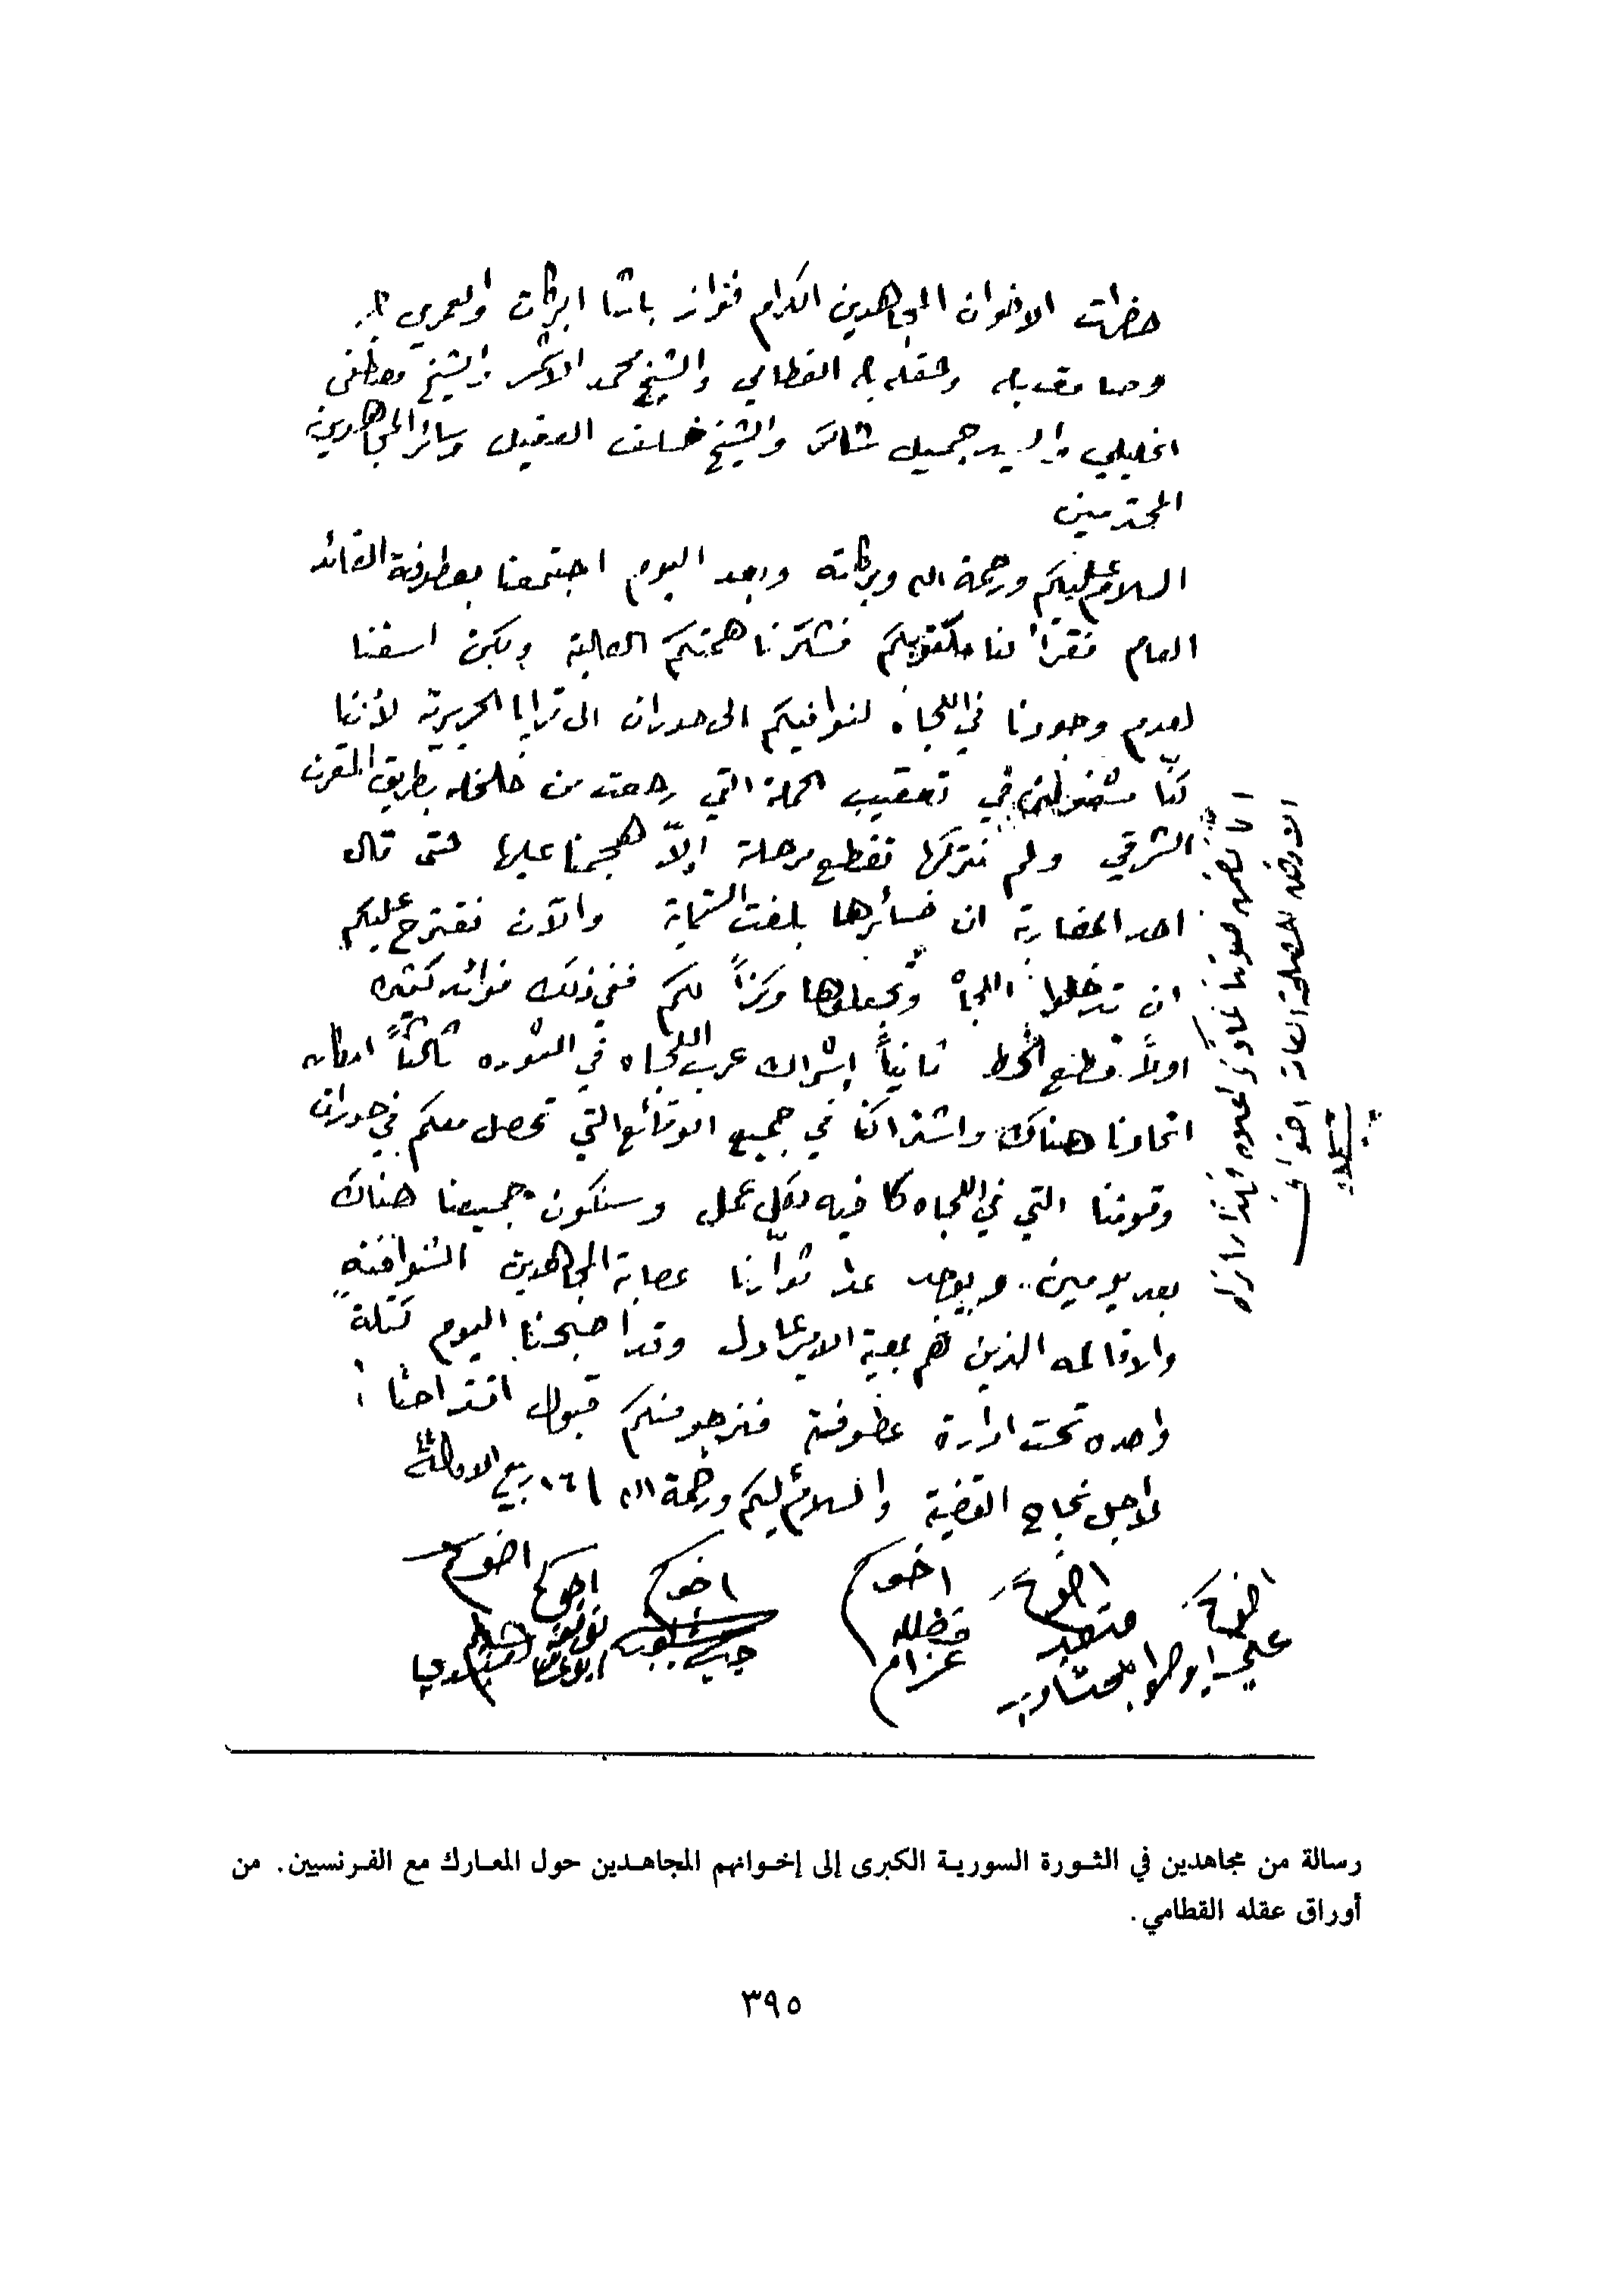 حضرات الاخوان المجاهدين الكرام فواز باشا البركات والعمري بك
وعقله بك القطامي والشيخ محمد الاشمر والشيخ مصطفى
الخليلي والسيد جميل شاكر والشيخ خلف العقيل وسائر المجاهدين
المحترمين
السلام عليكم ورحمة الله وبركاته وبعد اليوم اجتمعنا بعطوفة القائد
العام فقرأ لنا مكتوبكم فشكرنا همتكم العالية ولكن اسفنا
لعدم وجودنا في اللجاه لنوافيكم الى حوران الى قرايا الحريرية لأننا
كنا مشغولين في تعقيب الحملة التي رجعت من خلخله بطريق المقرن
الشرقي ولم نتركها تقطع مرحلة إلاّ هجمنا عليها حتى قال
احد المغاربة ان خسائرها بلغت الستماية والآن نقترح عليكم
ان تدخلوا اللجاه وتجعلوها مركزاً لكم ففي ذلك فوائد كثيره
اولاً قطع الخط ثانياً إشراك عرب اللجاه في الثوره ثالثاً امكان
اتحادنا هناك واشتراكنا في جميع الوقائع التي تحصل معكم في حوران
وقوتنا التي في اللجاه كافيه لكل عمل وسنكون جميعنا هناك
بعد يومين.. ويوجد عدا ثوارنا عصابة المجاهدين الشواغنه
والذين هم بمعية الامير عادل وقد اصبحنا اليوم كتلة
واحده تحت ادارة عطوفته فنرجو منكم قبول اقتراحنا
لاجل نجاح القضية والسلام عليكم ورحمة الله ١٦ ربيع الاول
اخوكم
علي
اخوكم
متعب
اخوكم
فضل الله
عزام
اخوكم
اخوكم
اخوكم
رسالة من مجاهدين في الثورة السورية الكبرى إلى إخوانهم المجاهدين حول المعارك مع الفرنسيين. من
أوراق عقله القطامي.
٣٩٥